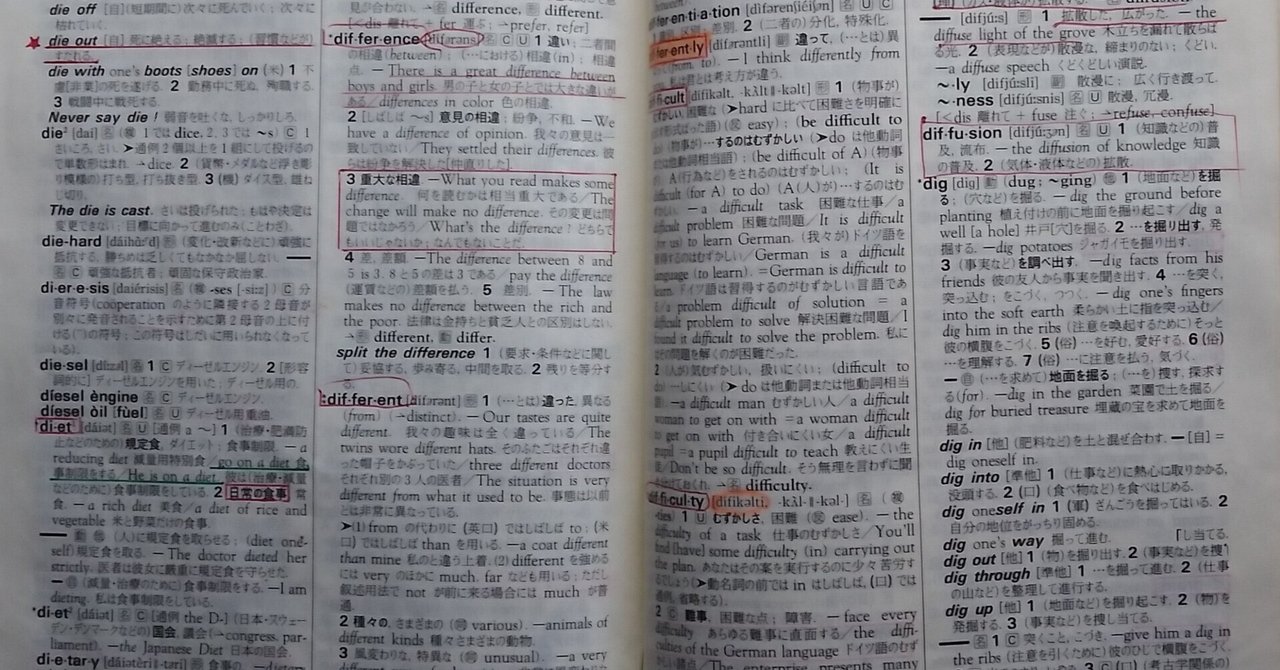 die off [自] (短期間に) 次々に死んでいく; 次々に
枯れていく.
die out [自] 死に絶える; 絶滅する; (習慣などが)
すたれる.
die with one's boots [shoes] on (米) 1 不
慮[非業]の死を遂げる. 2 勤務中に死ぬ, 殉職する.
3 戦闘中に戦死する.
Never say die! 弱音を吐くな, しっかりしろ.
die² [dai] 名 (複 1では dice, 2, 3では ~s) C 1
さいころ, さい. ➤通例2個以上を1組にして投げるの
で単数形はまれ. →dice. 2 (貨幣・メダルなど浮き彫
り模様の) 打ち型, 打ち抜き型. 3 (機) ダイス型, 雄ね
じ切り.
The die is cast. さいは投げられた; もはや決定は
変更できない; 目標に向かって進むのみ(ことわざ).
die-hard [dáihὰːrd] 形 (変化・改新などに) 頑強に
抵抗する, 勝ちめは乏しくてもなかなか屈しない. ━
名 C 頑強な抵抗者; 頑固な保守政治家.
di·er·e·sis [daiérisis] 名 (複 -ses [-siːz]) C 分
音符号 (coöperation のように隣接する2母音が
別々に発音されることを示すために第2母音の上に付
ける (¨) の符号; この符号はしだいに用いられなくなって
いる).
die·sel [díːzəl] 名 1 C ディーゼルエンジン. 2 [形容
詞的に] ディーゼルエンジンを用いた; ディーゼル用の.
díesel èngine 名 C ディーゼルエンジン.
díesel òil [fùel] 名 U ディーゼル用重油.
*di·et¹ [dáiət] 名 U [通例 a ~] 1 (治療・肥満防
止などのための) 規定食, ダイエット; 食事制限. ―a
reducing diet 減量用特別食/go on a diet 食
事制限をする/He is on a diet. 彼は(治療・減量
などのために) 食事制限をしている. 2 日常の食事, 常
食. ―a rich diet 美食/a diet of rice and
vegetable 米と野菜だけの食事.
━ 動 他 (人)に規定食を取らせる; (diet one-
self) 規定食を取る. ―The doctor dieted her
strictly. 医者は彼女に厳重に規定食を守らせた.
━ 自 (減量・治療のために) 食事制限をする. ―I am
dieting. 私は食事制限をしている.
*di·et² [dáiət] 名 C [通例 the D-] (日本・スウェー
デン・デンマークなどの) 国会, 議会 (→congress, par-
liament). ―the Japanese Diet 日本の国会.
di·e·tar·y [dáiətèri‖-təri] 形 食事の
見が合わない. →名 difference, 形 different.
[<dis 離れて + fer 運ぶ; →prefer, refer]
*dif·fer·ence [dífərəns] 名 C U 1 違い; 二者間
の相違 (between); (…における) 相違 (in); 相違
点. ―There is a great difference between
boys and girls. 男の子と女の子とでは大きな違いが
ある/differences in color 色の相違.
2 [しばしば ~s] 意見の相違; 紛争, 不和. ―We
have a difference of opinion. 我々の意見は一
致していない/They settled their differences. 彼
らは紛争を解決した[仲直りした].
3 重大な相違. ―What you read makes some
difference. 何を読むかは相当重大である/The
change will make no difference. その変更は問
題ではなかろう/What's the difference? どちらで
もいいじゃないか; なんでもないことだ.
4 差, 差額. ―The difference between 8 and
5 is 3. 8と5の差は3である/pay the difference
(運賃などの) 差額を払う. 5 差別. ―The law
makes no difference between the rich and
the poor. 法律は金持ちと貧乏人との区別はしない.
→形 different, 動 differ.
split the difference 1 (要求・条件などに関し
て) 妥協する, 歩み寄る, 中間を取る. 2 残りを等分す
る.
*dif·fer·ent [dífərənt] 形 1 (…とは) 違った, 異なる
(from) (→distinct). ―Our tastes are quite
different. 我々の趣味は全く違っている/The
twins wore different hats. そのふたごはそれぞれ違
った帽子をかぶっていた/three different doctors
それぞれ別の3人の医者/The situation is very
different from what it used to be. 事態は以前
とは非常に異なっている.
➤(1) from の代わりに (英口) ではしばしば to: (米
口) ではしばしば than を用いる. ―a coat different
than mine 私のと違う上着. (2) different を強める
には very のほかに much, far なども用いる; ただし
叙述用法で not が前に来る場合には much が普
通.
2 種々の, さまざまの (同 various). ―animals of
different kinds 種々さまざまの動物.
3 風変わりな, 特異な (同 unusual). ―a very
fer·en·ti·a·tion [dìfərènʃiéiʃən] 名 U C
差別. 2 (二者の) 分化, 特殊化.
fer·ent·ly [dífərəntli] 副 違って, (…とは) 異
(from, to). ―I think differently from
私は君とは考え方が違う.
ficult [dífikəlt, -kʌ̀lt‖-kəlt] 形 1 (物事が)
むずかしい, 困難な (➤hard に比べて困難さを明確に
形式ばった語) (反 easy); (be difficult to
do) (物事が) …するのはむずかしい (➤do は他動詞
または他動詞相当語); (be difficult of A) (物事
が A(行為など) をされるのはむずかしい; (It is
difficult (for A) to do) (A(人)が) …するのはむ
―a difficult task 困難な仕事/a
problem 困難な問題/It is difficult
(for us) to learn German. (我々が) ドイツ語を
習得するのはむずかしい/German is difficult
language (to learn). =German is difficult to
learn. ドイツ語は習得するのがむずかしい言語であ
る/a problem difficult of solution = a
difficult problem to solve 解決困難な問題/I
found it difficult to solve the problem. 私に
はその問題を解くのが困難だった.
2 (人が) 気むずかしい, 扱いにくい; (difficult to
do) …しにくい (➤do は他動詞または他動詞相当
―a difficult man むずかしい人/a difficult
woman to get on with =a woman difficult
to get on with 付き合いにくい女/a difficult
pupil =a pupil difficult to teach 教えにくい生
徒/Don't be so difficult. そう無理を言わずに聞
→名 difficulty.
dif·fi·cul·ty [dífikəlti, -kʌ̀l-‖-kəl-] 名 (複
-ties) 1 U むずかしさ, 困難 (反 ease). ―the
difficulty of a task 仕事のむずかしさ/You'll
find (have) some difficulty (in) carrying out
the plan. あなたはその案を実行するのに少々苦労す
るでしょう (➤動名詞の前では in はしばしば, (口) では
通例, 省略する).
2 C 難事, 困難な点; 障害. ―face every
difficulty あらゆる難事に直面する/the diffi-
culties of the German language ドイツ語のむず
かしい諸点/The enterprise presents many
[difjúːs] 形 1 拡散した, 広がった. ―the
diffuse light of the grove 木立ちを漏れて散らば
る光. 2 (表現などが) 散漫な, 締まりのない; くどい.
―a diffuse speech くどくどしい演説.
~·ly [difjúːsli] 副 散漫に; 広く行き渡って.
~·ness [difjúːsnis] 名 U 散漫, 冗漫.
[<dis 離れて + fuse 注ぐ; →refuse, confuse]
dif·fu·sion [difjúːʒən] 名 U 1 (知識などの) 普
及, 流布. ―the diffusion of knowledge 知識
の普及. 2 (気体・液体などの) 拡散.
*dig [dig] 動 (dug; ~ging) 他 1 (地面など)を掘
る; (穴など)を掘る. ―dig the ground before
planting 植え付けの前に地面を掘り起こす/dig a
well [a hole] 井戸[穴]を掘る. 2 …を掘り出す, 発
掘する. ―dig potatoes ジャガイモを掘り出す.
3 (事実など)を調べ出す. ―dig facts from his
friends 彼の友人から事実を聞き出す. 4 …を突く,
突っ込む; をこづく, つつく. ―dig one's fingers
into the soft earth 柔らかい土に指を突っ込む/
dig him in the ribs (注意を喚起するために) そっと
彼の横腹をこづく. 5 (俗) …を好む, 愛好する. 6 (俗)
…を理解する. 7 (俗) …に注意を払う, 気づく.
━ 自 (…を求めて) 地面を掘る; (…を) 捜す, 探求す
る (for). ―dig in the garden 菜園で土を掘る/
dig for buried treasure 埋蔵の宝を求めて地面を
掘る.
dig in [他] (肥料など)を土と混ぜ合わす. ━[自] =
dig oneself in.
dig into [準他] 1 (仕事など)に熱心に取りかかる,
没頭する. 2 (口) (食べ物など)を食べはじめる.
dig oneself in 1 (軍) ざんごうを掘ってはいる. 2
自分の地位をがっちり固める.
dig one's way 掘って進む. 「し当てる.
dig out [他] 1 (物)を掘り出す. 2 (事実など)を捜
dig through [準他] 1 …を掘って進む. 2 (仕事
の山など)を整理して進行する.
dig up [他] 1 (地面など)を掘り起こす. 2 (物)を
発掘する. 3 (事実など)を捜し当てる.
━ 名 1 C 突くこと, こづき. ―give him a dig in
the ribs (注意を引くために) 彼のひじで横腹をこづく